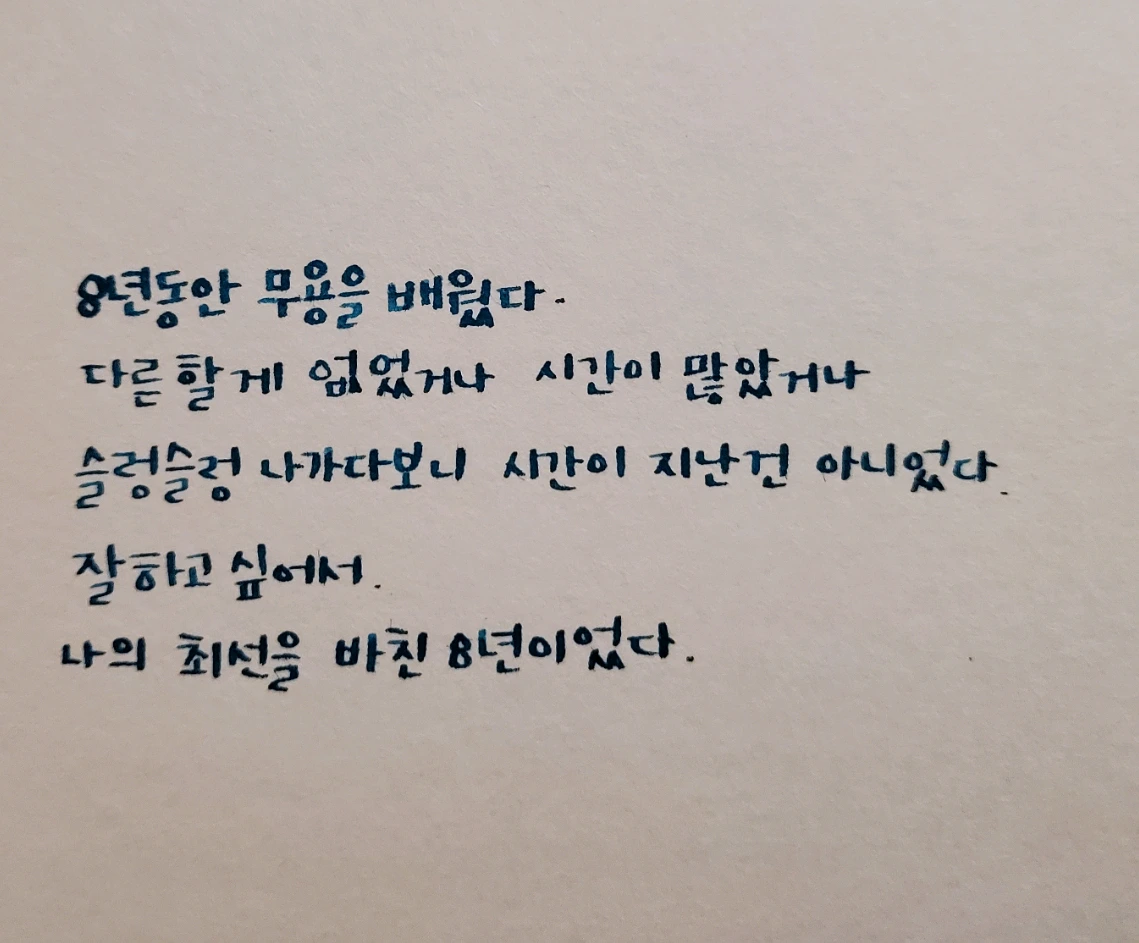 8년동안 무용을 배웠다.
다른 할게 없었거나 시간이 많았거나
슬렁슬렁 나가다보니 시간이 지난건 아니었다.
잘하고 싶어서.
나의 최선을 바친 8년이었다.